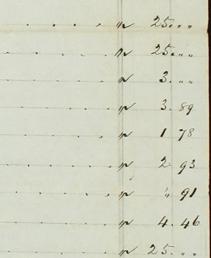 " 25...
" 25...
" 3...
" 3.89
" 1 78
" 2 93
" 4 91
" 4.46
" 25...